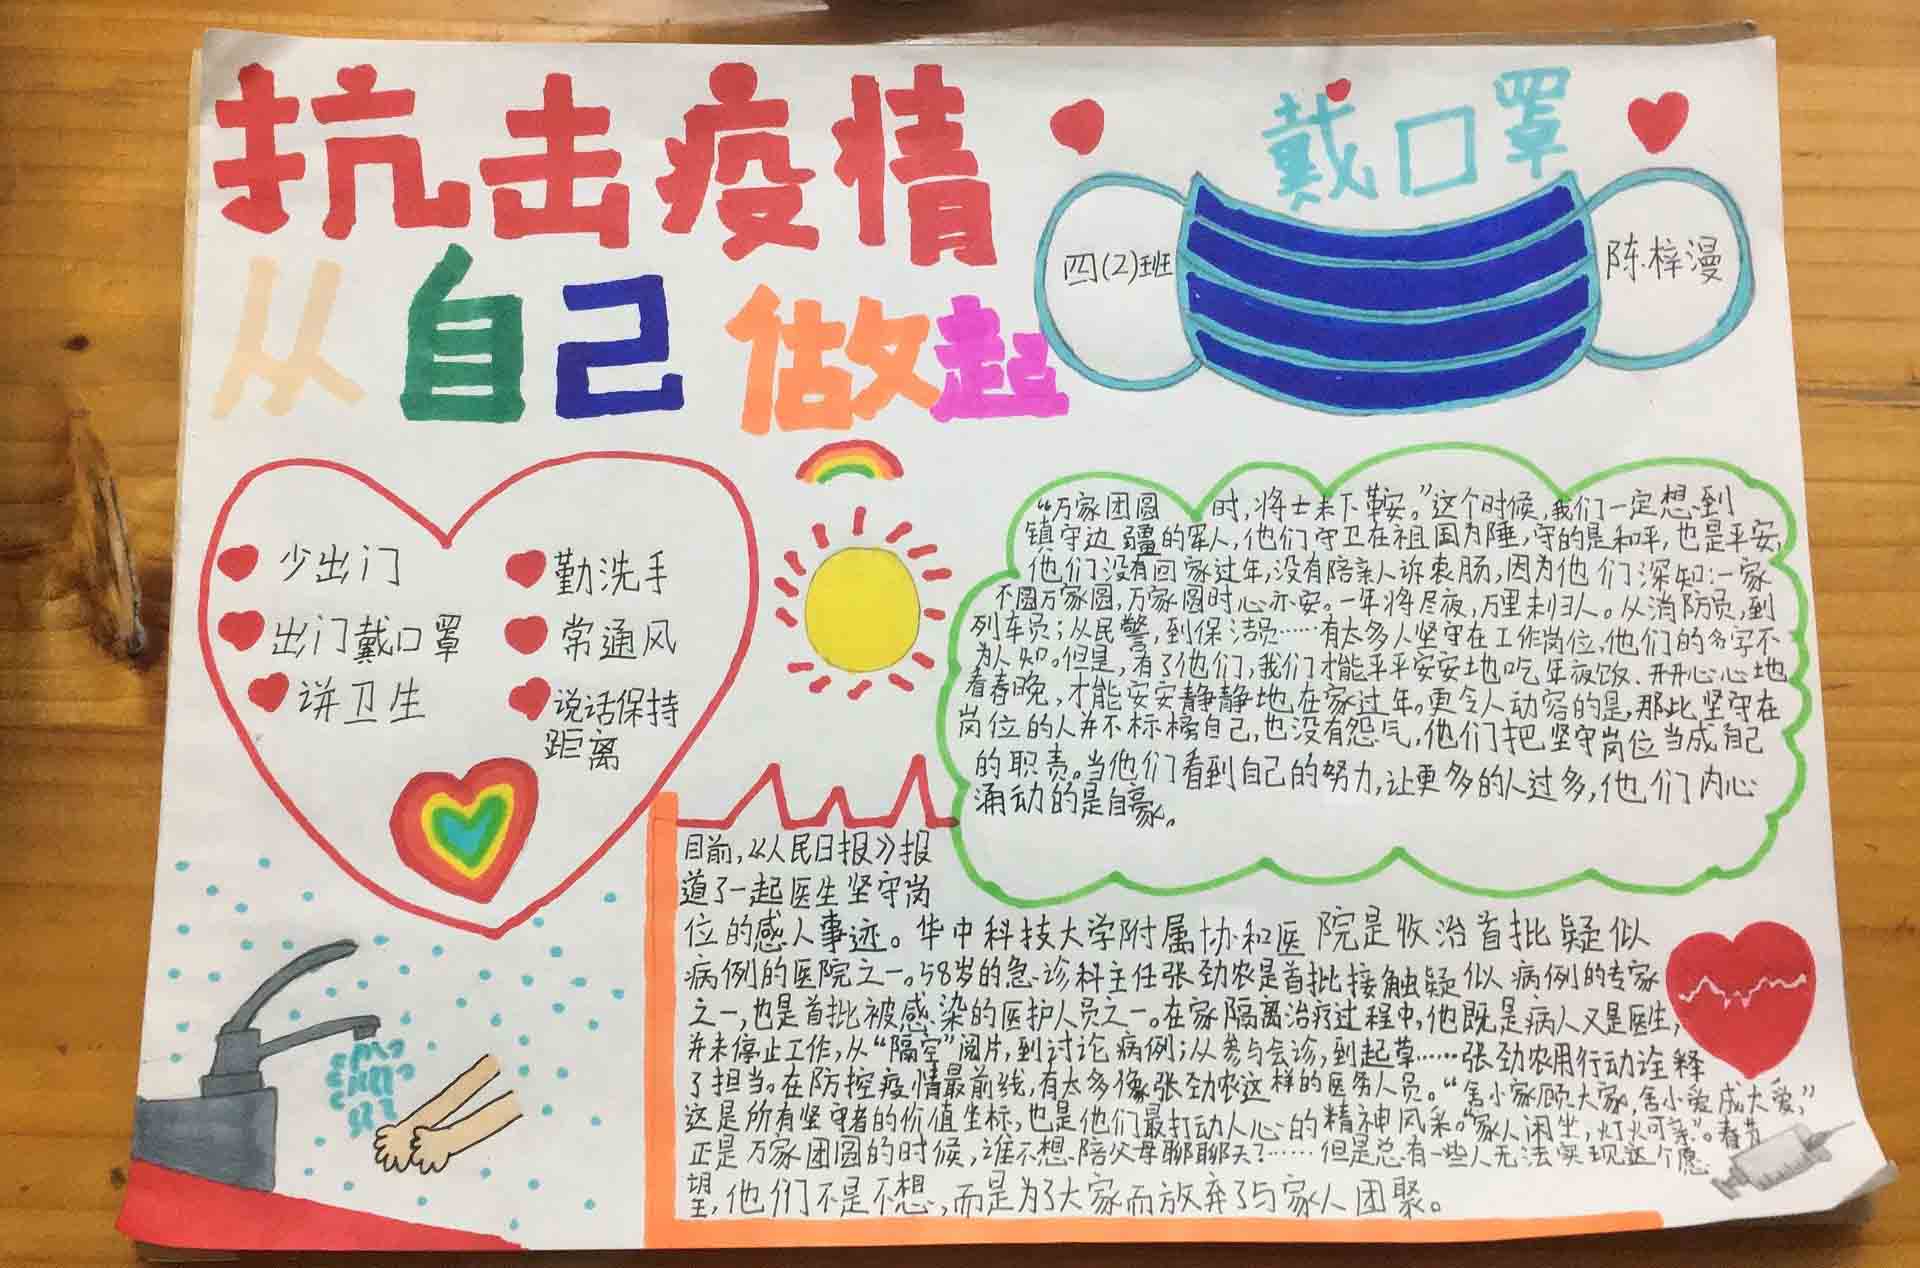 抗击疫情
从自己做起
戴口罩
四(2)班
陈梓漫
少出门
出门戴口罩
讲卫生
勤洗手
常通风
说话保持
距离
“万家团圆时,将士未下鞍。”这个时候,我们一定想到
镇守边疆的军人,他们守卫在祖国为陲,守的是和平,也是平安,
他们没有回家过年,没有陪亲人诉衷肠,因为他们深知:一家
不圆万家圆,万家圆时心亦安。一年将尽夜,万里未归人。从消防员,到
列车员;从民警,到保洁员……有太多人坚守在工作岗位,他们的名字不
为人知。但是,有了他们,我们才能平平安安地吃年夜饭、开开心心地
看春晚,才能安安静静地在家过年。更令人动容的是,那此坚守在
岗位的人并不标榜自己,也没有怨气,他们把坚守岗位当成自己
的职责。当他们看到自己的努力,让更多的人过多,他们内心
涌动的是自豪。
目前,《人民日报》报
道了一起医生坚守岗
位的感人事迹。华中科技大学附属协和医院是收治首批疑似
病例的医院之一。58岁的急诊科主任张劲农是首批接触疑似病例的专家
之一,也是首批被感染的医护人员之一。在家隔离治疗过程中,他既是病人又是医生,
并未停止工作,从“隔空”阅片,到讨论病例;从参与会诊,到起草……张劲农用行动诠释
了担当。在防控疫情最前线,有太多像张劲农这样的医务人员。“舍小家顾大家,舍小爱成大爱,”
这是所有坚守者的价值坐标,也是他们最打动人心的精神风采。“家人闲坐,灯火可亲”。春节
正是万家团圆的时候,谁不想陪父母聊聊天?……但是总有一些人无法实现这个愿
望,他们不是不想,而是为了大家而放弃了与家人团聚。